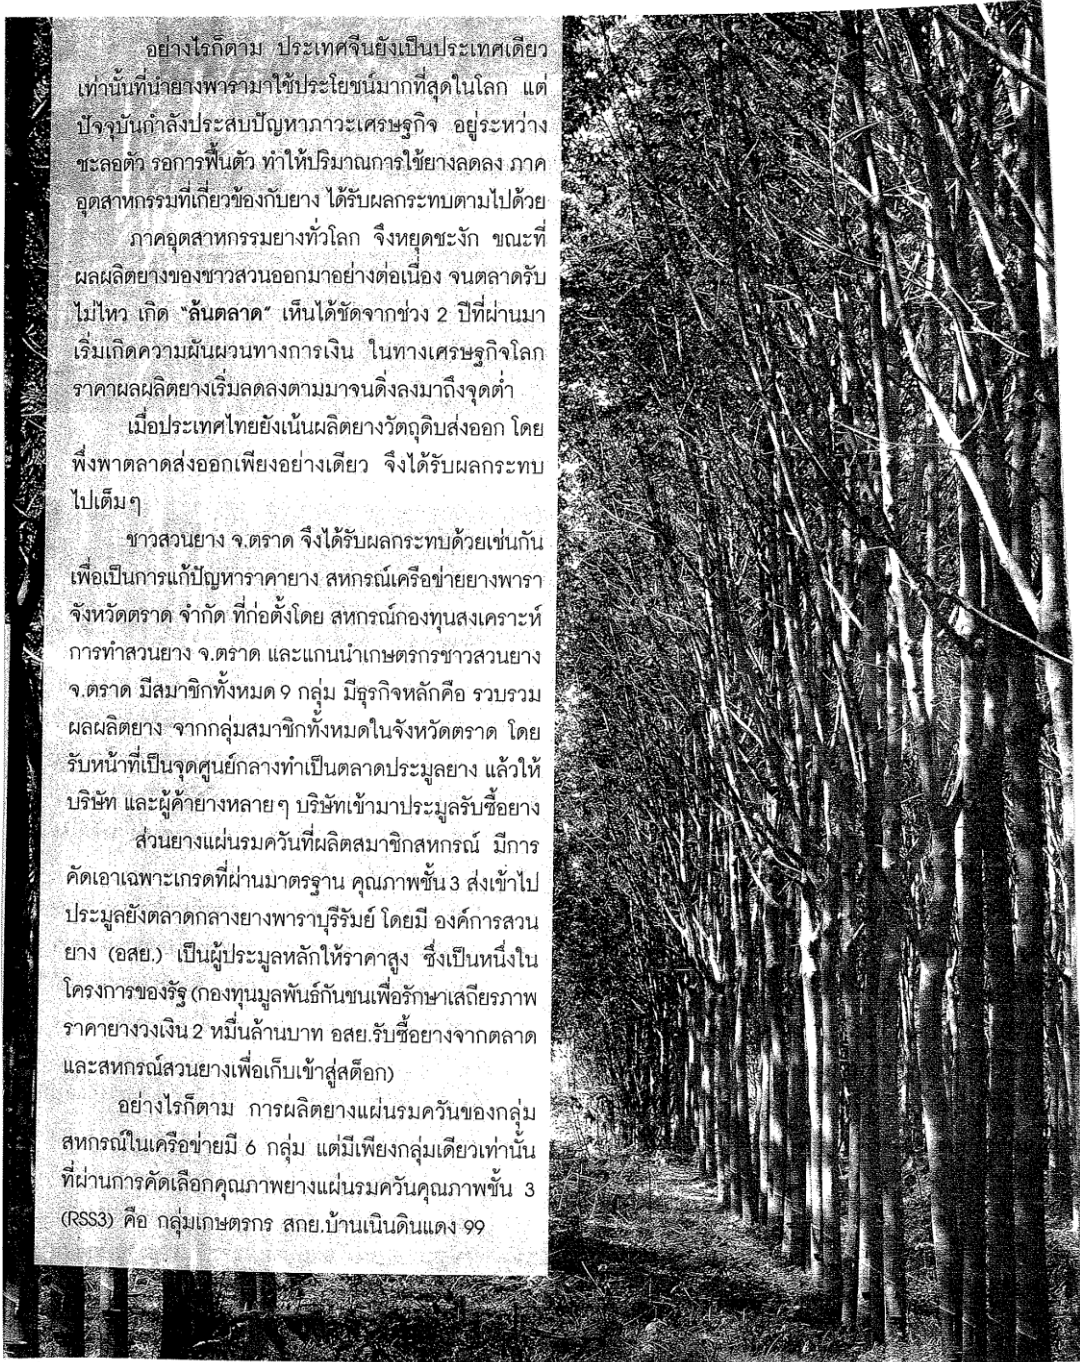 อย่างไรก็ตาม ประเทศจีนยังเป็นประเทศเดียว
เท่านั้นที่นำยางพารามาใช้ประโยชน์มากที่สุดในโลก แต่
ปัจจุบันกำลังประสบปัญหาภาวะเศรษฐกิจ อยู่ระหว่าง
ชะลอตัว รอการฟื้นตัว ทำให้ปริมาณการใช้ยางลดลง ภาค
อุตสาหกรรมที่เกี่ยวข้องกับยาง ได้รับผลกระทบตามไปด้วย
ภาคอุตสาหกรรมยางทั่วโลก จึงหยุดชะงัก ขณะที่
ผลผลิตยางของชาวสวนออกมาอย่างต่อเนื่อง จนตลาดรับ
ไม่ไหว เกิด “ล้นตลาด” เห็นได้ชัดจากช่วง 2 ปีที่ผ่านมา
เริ่มเกิดความผันผวนทางการเงิน ในทางเศรษฐกิจโลก
ราคาผลผลิตยางเริ่มลดลงตามมาจนดิ่งลงมาถึงจุดต่ำ
เมื่อประเทศไทยยังเน้นผลิตยางวัตถุดิบส่งออก โดย
พึ่งพาตลาดส่งออกเพียงอย่างเดียว จึงได้รับผลกระทบ
ไปเต็มๆ
ชาวสวนยาง จ.ตราด จึงได้รับผลกระทบด้วยเช่นกัน
เพื่อเป็นการแก้ปัญหาราคายาง สหกรณ์เครือข่ายยางพารา
จังหวัดตราด จำกัด ที่ก่อตั้งโดย สหกรณ์กองทุนสงเคราะห์
การทำสวนยาง จ.ตราด และแกนนำเกษตรกรชาวสวนยาง
จ.ตราด มีสมาชิกทั้งหมด 9 กลุ่ม มีธุรกิจหลักคือ รวบรวม
ผลผลิตยาง จากกลุ่มสมาชิกทั้งหมดในจังหวัดตราด โดย
รับหน้าที่เป็นจุดศูนย์กลางทำเป็นตลาดประมูลยาง แล้วให้
บริษัท และผู้ค้ายางหลายๆ บริษัทเข้ามาประมูลรับซื้อยาง
ส่วนยางแผ่นรมควันที่ผลิตสมาชิกสหกรณ์ มีการ
คัดเอาเฉพาะเกรดที่ผ่านมาตรฐาน คุณภาพชั้น 3 ส่งเข้าไป
ประมูลยังตลาดกลางยางพาราบุรีรัมย์ โดยมี องค์การสวน
ยาง (อสย.) เป็นผู้ประมูลหลักให้ราคาสูง ซึ่งเป็นหนึ่งใน
โครงการของรัฐ (กองทุนมูลพันธ์กันชนเพื่อรักษาเสถียรภาพ
ราคายางวงเงิน 2 หมื่นล้านบาท อสย.รับซื้อยางจากตลาด
และสหกรณ์สวนยางเพื่อเก็บเข้าสู่สต็อก)
อย่างไรก็ตาม การผลิตยางแผ่นรมควันของกลุ่ม
สหกรณ์ในเครือข่ายมี 6 กลุ่ม แต่มีเพียงกลุ่มเดียวเท่านั้น
ที่ผ่านการคัดเลือกคุณภาพยางแผ่นรมควันคุณภาพชั้น 3
(RSS3) คือ กลุ่มเกษตรกร สกย.บ้านเนินดินแดง 99